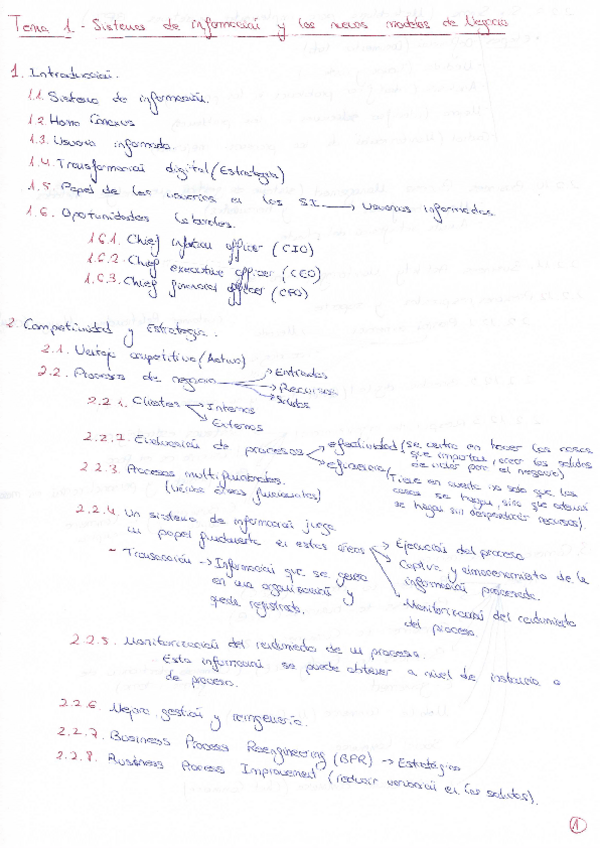 Tema 1 - Sistemas de información y los nuevos modelos de Negocio
1. Introducción.
1.1. Sistema de información.
1.2. Homo Conexus
1.3. Usuario informado.
1.4. Transformación digital (Estrategia)
1.5. Papel de los usuarios en los S.I. → Usuarios informados
1.6. Oportunidades laborales.
1.6.1. Chief information officer (CIO)
1.6.2. Chief executive officer (CEO)
1.6.3. Chief financial officer (CFO)
2. Competitividad y Estrategia.
2.1. Ventaja competitiva (Activo)
2.2. Procesos de negocio → Entradas
→ Recursos
→ Salidas
2.2.1. Clientes → Internos
→ Externos
2.2.2. Evaluación de procesos → efectividad (se centra en hacer las cosas
que importan, crear las salidas
de valor por el negocio)
→ eficiencia (Tiene en cuenta no solo que las
cosas se hagan, sino que además
se hagan sin desperdiciar recursos).
2.2.3. Procesos multifuncionales.
(Varias áreas funcionales)
2.2.4. Un sistema de información juega
un papel fundamental en estas áreas → Ejecución del proceso
→ Captura y almacenamiento de la
información procesada.
→ Monitorización del rendimiento
del proceso.
- Transacción → Información que se genera
en una organización y
queda registrada.
2.2.5. Monitorización del rendimiento de un proceso.
- Esta información se puede obtener a nivel de instancia o
de proceso.
2.2.6. Mejora, gestión y reingeniería.
2.2.7. Business Process Reengineering (BPR) → Estratégico
2.2.8. Business Process Improvement (reducir variación en las salidas).
1